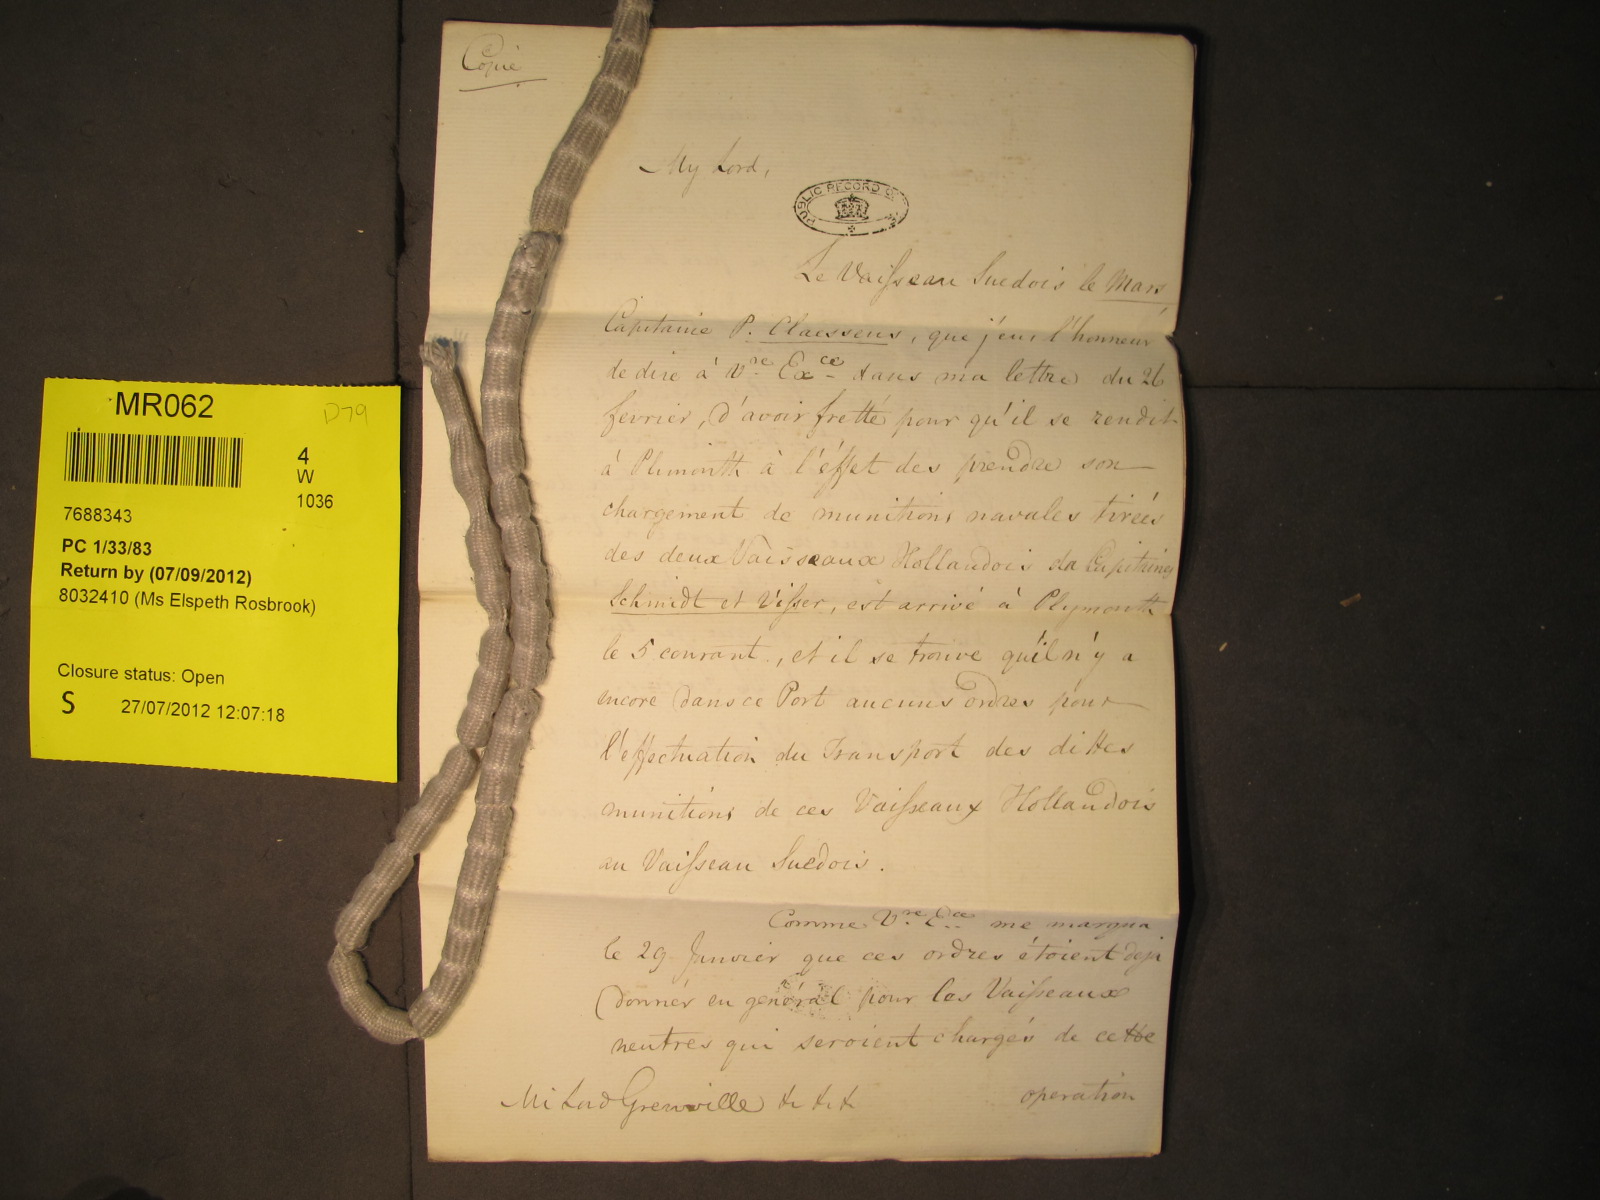 Copie
My Lord,
PUBLIC RECORD O
Le Vaisseau Suedois le Mars
Capitaine P. Claessens, que j'eus l'honneur
de dire à Vre Exce dans ma lettre du 26
fevrier, d'avoir fretté pour qu'il se rendit
à Plimouth à l'éffet des prendre son
chargement de munitions navales tirées
des deux Vaisseaux Hollandois da Capitaines
Schmidt et Visser, est arrivé à Plymouth
le 5 courant, et il se trouve qu'il n'y a
encore dans ce Port aucuns ordres pour
l'effectuation du Transport des dittes
munitions de ces Vaisseaux Hollandois
au Vaisseau Suedois.
Comme Vre Ece me marqua
le 29 Janvier que ces ordres étoient deja
donnés en genéral pour les Vaisseaux
neutres qui seroient chargés de cette
Mi Lord Grenville &c &c &c operation
MR062
D79
4
W
1036
7688343
PC 1/33/83
Return by (07/09/2012)
8032410 (Ms Elspeth Rosbrook)
Closure status: Open
S 27/07/2012 12:07:18